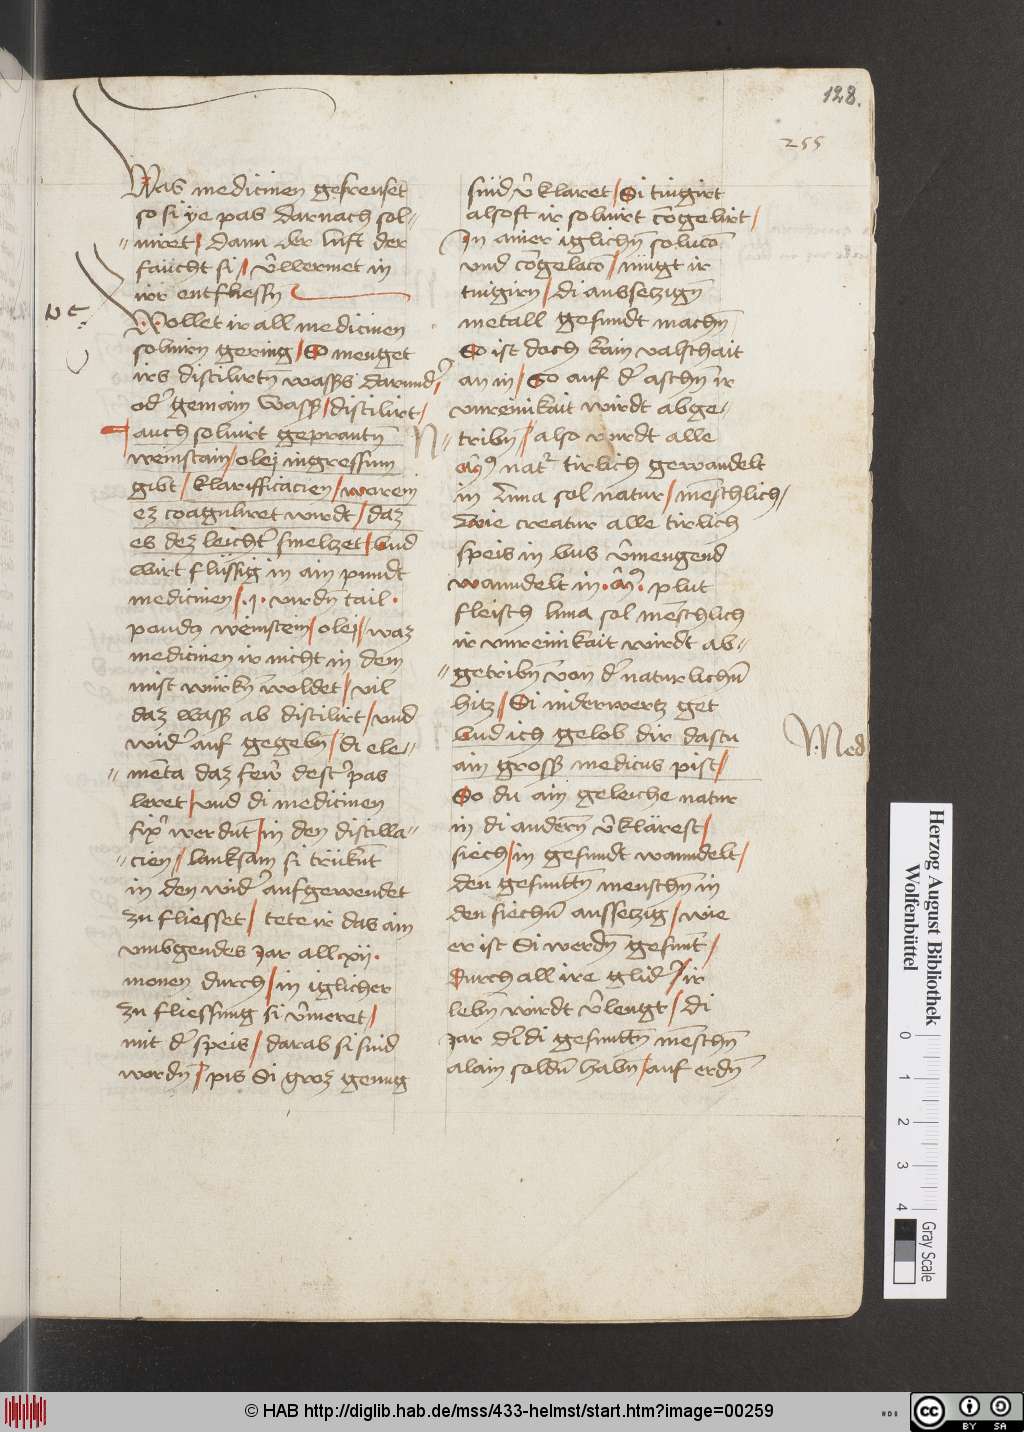 128.
255
Was medicinen gefrenset
so si ye pas darnach sol-
-niret / dann der luft der
faucht si / v̄llermet in
irr entfliessn̄
Wollet ir all medicinen
soluirn gering / So menget
irs distilirtn̄ wassers darund'
od' gemain wass' / distilirt /
auch soluirt geprantn̄
weinstain / olej ingressum
gibt / klarifficacien / worein
ez coaguliret wurdt / daz
es dez leicht' smeltzet / vnd
wirt flüssig in ain pundt
medicinen / .j. virdn̄ tail .
weinstein / olej / waz
medicinen ir nicht in dem
mist würkn̄ woldet / vil
daz wass' ab distilirt / vnd
wid' auf gegebn̄ / di ele-
-menta daz fewr dest' pas
leret / vnd di medicinen
fix' werdnt / in den distilla-
-cien / lanksam si trükn̄t
in den wid' aufgewendet
zu fliesset / tete ir das ain
vmbgendes Jar all xij .
monen durch / in iglicher
zu fliessung si v̄meret /
mit d' speis / darab si sind
wordn̄ / pis Si groz genug
sind v̄klaret / Si tingirt
alsoft ir soluirt cōgelirt /
In ainer iglichn̄ solucō
vnd cōgelacō / mügt ir
tingirn / di aussetzign̄
metall gesundt machn̄
So ist doch kain valschait
an in / So auf d' aschn̄ ir
vnreinikait wirdt abge-
-tribn̄ / also wirdt alle
nat' tirlich gewandelt
in sol natur / mēschlich /
Wie creatur alle tirlich
speis in vns v̄mengend
wanndelt in plut
fleisch sol mēschlich
ir vnreinikait wirdt ab-
-getribn̄ von d' naturlichn̄
hitz / Si inderwertz get
Vnd ich gelob dir dastu
ain gross' medicus pist /
So du ain geleiche natur
in di andern̄ v̄klärest /
siech / in gesundt wanndelt /
den gesuntn̄ menschn̄ in
den siechn̄ aussetzig / wie
er ist Si werdn̄ gesunt /
Durch all ire glid' / ir
lebn̄ wirdt v̄lengt / di
Jar di gesuntn̄ mēschn̄
alain soldn̄ habn̄ / auf erdn̄
Med
Herzog August Bibliothek
Wolfenbüttel
0
1
2
3
4
Gray Scale
© HAB http://diglib.hab.de/mss/433-helmst/start.htm?image=00259
HAB
cc
BY SA